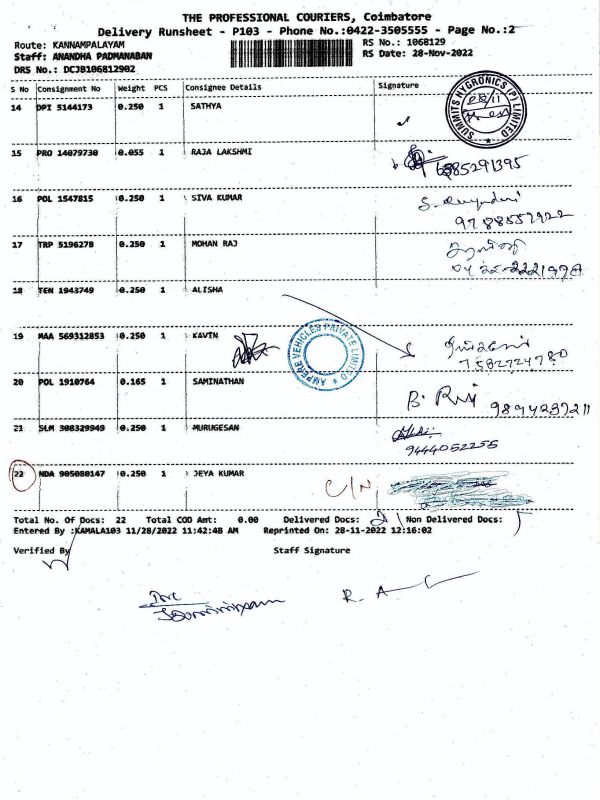 THE PROFESSIONAL COURIERS, Coimbatore
Delivery Runsheet - P103 - Phone No.:0422-3505555 - Page No.:2
Route: KANNAMPALAYAM RS No.: 1068129
Staff: ANANDHA PADMANABAN RS Date: 28-Nov-2022
DRS No.: DCJB106812902
S No Consignment No Weight PCS Consignee Details Signature
14 DPI 5144173 0.250 1 SATHYA
SUMMITS HYGRONICS (P) LIMITED
28/11
15 PRO 14079730 0.055 1 RAJA LAKSHMI
6385291395
16 POL 1547815 0.250 1 SIVA KUMAR
9788557922
17 TRP 5196278 0.250 1 MOHAN RAJ
18 TEN 1943749 0.250 1 ALISHA
19 MAA 569312853 0.250 1 KAVIN
AMPERE VEHICLES PRIVATE LIMITED
20 POL 1910764 0.165 1 SAMINATHAN
21 SLM 308329949 0.250 1 MURUGESAN
9444052255
22 NDA 905080147 0.250 1 JEYA KUMAR
C/N
Total No. Of Docs: 22 Total COD Amt: 0.00 Delivered Docs: 21 Non Delivered Docs: 1
Entered By :KAMALA103 11/28/2022 11:42:48 AM Reprinted On: 28-11-2022 12:16:02
Verified By Staff Signature